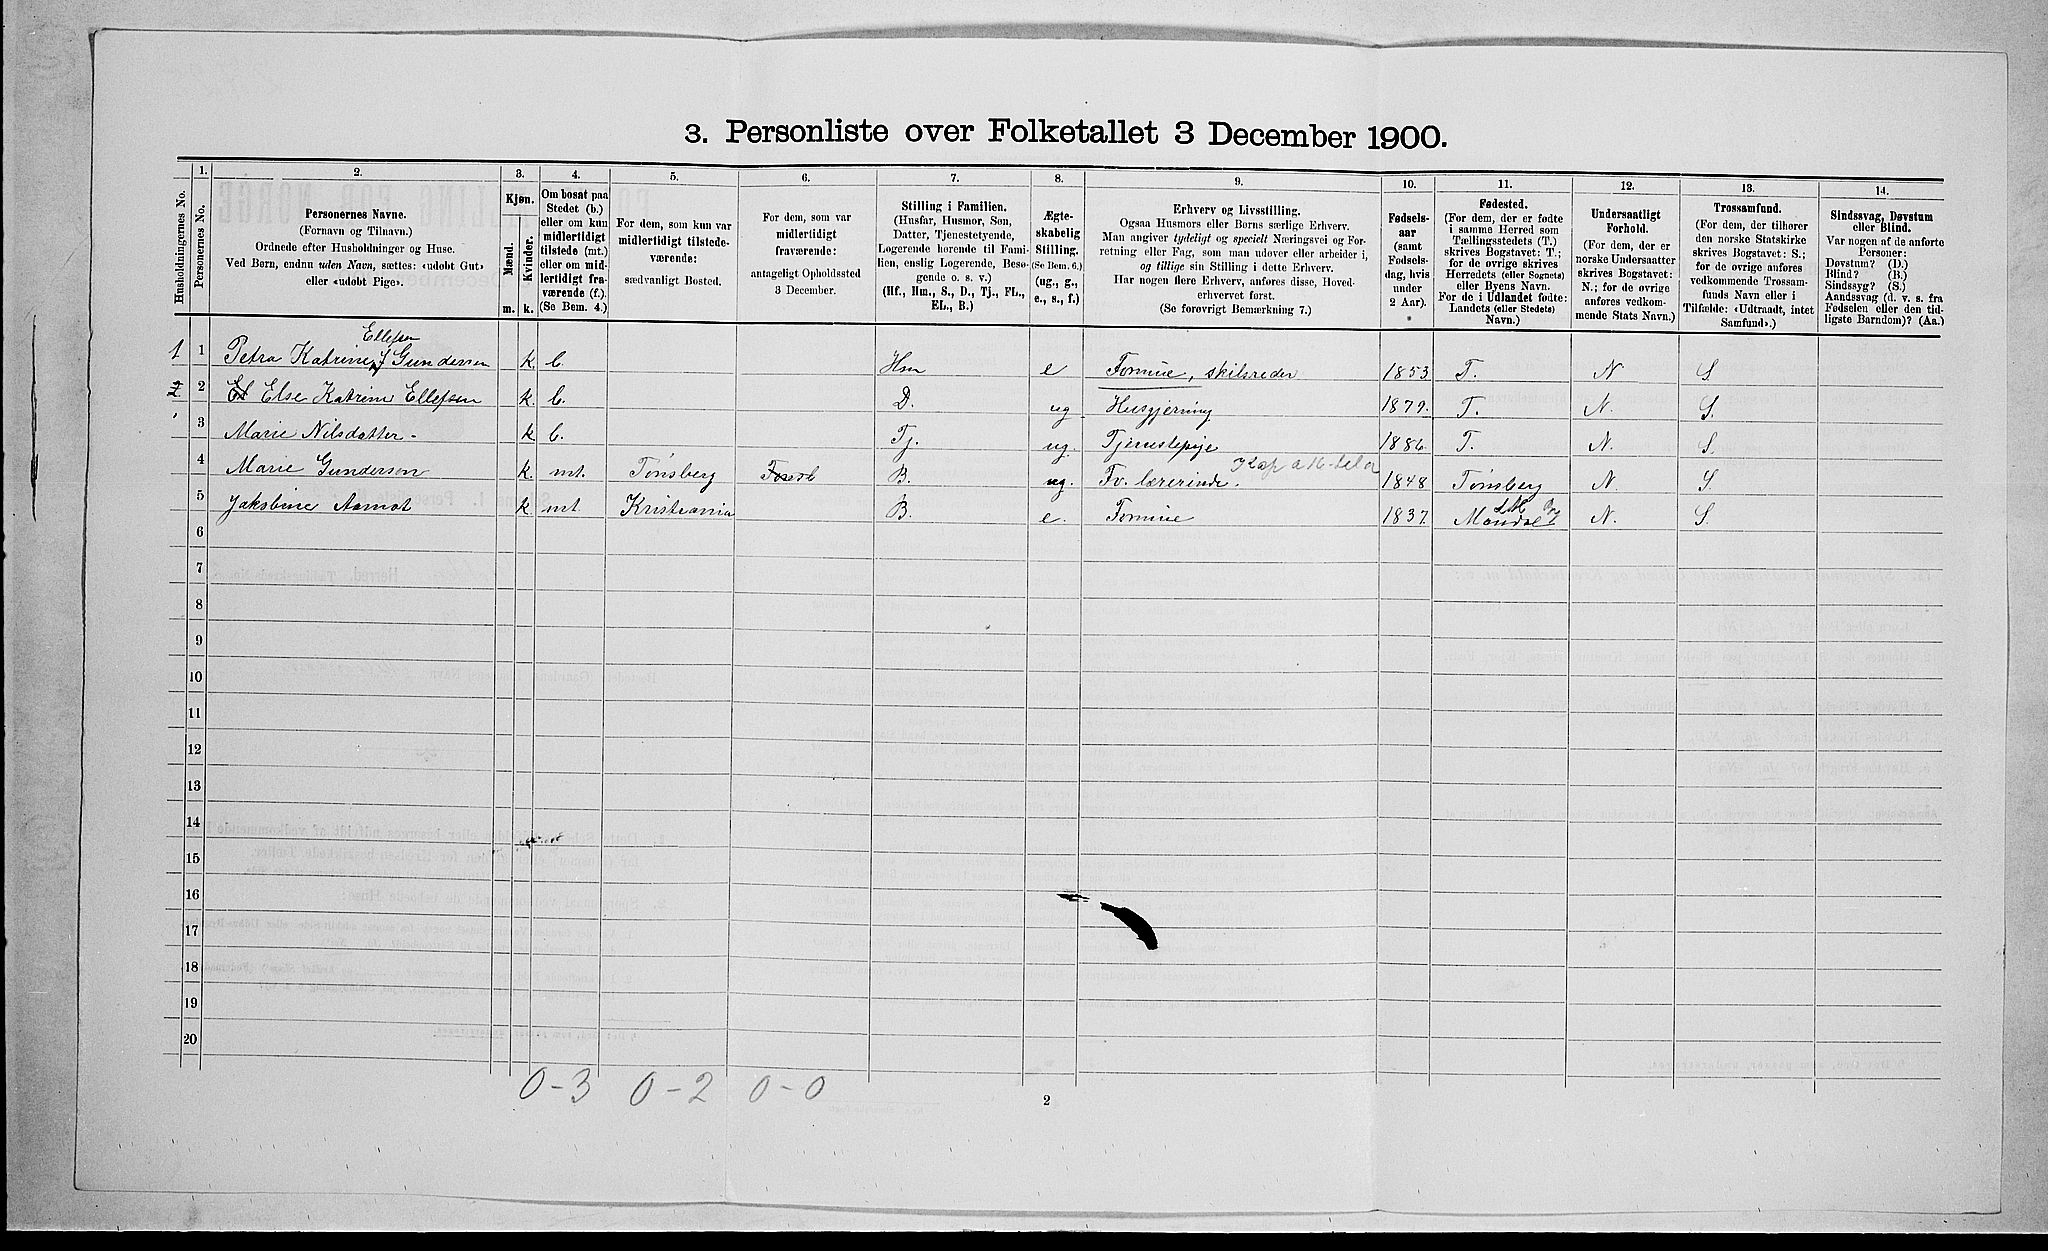 3. Personliste over Folketallet 3 December 1900.
Husholdningernes No.
1.
Personernes No.
2.
Personernes Navne.
(Fornavn og Tilnavn.)
Ordnede efter Husholdninger og Huse.
Ved Børn, endnu uden Navn, sættes: «udøbt Gut»
eller «udøbt Pige».
3.
Kjøn.
Mænd.
Kvinder.
m. k.
4.
Om bosat paa
Stedet (b.)
eller om kun
midlertidigt
tilstede (mt.)
eller om mid-
lertidigt fra-
værende (f.).
(Se Bem. 4.)
5.
For dem, som kun var
midlertidigt tilstede-
værende:
sædvanligt Bosted.
6.
For dem, som var
midlertidigt
fraværende:
antageligt Opholdssted
3 December.
7.
Stilling i Familien.
(Husfar, Husmor, Søn,
Datter, Tjenestetyende,
Logerende hørende til Fami-
lien, enslig Logerende, Besø-
gende o. s. v.)
(Hf., Hm., S., D., Tj., FL.,
EL., B.)
8.
Ægte-
skabelig
Stilling.
(Se Bem. 6.)
(ug., g.,
e., s., f.)
9.
Erhverv og Livsstilling.
Ogsaa Husmors eller Børns særlige Erhverv.
Man angiver tydeligt og specielt Næringsvei og For-
retning eller Fag, som man udøver eller arbeider i,
og tillige sin Stilling i dette Erhverv.
Har nogen flere Erhverv, anføres disse, Hoved-
erhvervet først.
(Se forøvrigt Bemærkning 7.)
10.
Fødsels-
aar
(samt
Fødsels-
dag, hvis
under
2 Aar).
11.
Fødested.
(For dem, der er fødte
i samme Herred som
Tællingsstedets (T.)
skrives Bogstavet: T.;
for de øvrige skrives
Herredets (eller Sognets)
eller Byens Navn.
For de i Udlandet fødte:
Landets (eller Stedets)
Navn.)
12.
Undersaatligt
Forhold.
(For dem, der er
norske Undersaatter
skrives Bogstavet:
N.; for de øvrige
anføres vedkom-
mende Stats Navn.)
13.
Trossamfund.
(For dem, der tilhører
den norske Statskirke
skrives Bogstavet: S.;
for de øvrige anføres
vedkommende Trossam-
funds Navn eller i
Tilfælde: «Udtraadt, intet
Samfund».)
14.
Sindssvag, Døvstum
eller Blind.
Var nogen af de anførte
Personer:
Døvstum? (D.)
Blind? (B.)
Sindssyg? (S.)
Aandssvag (d. v. s. fra
Fødselen eller den tid-
ligste Barndom)? (Aa.)
Ellefsen
1 1 Petra Katrine f Gundersen k. b. Hm e Formue, skibsreder 1853 T. N S.
2 2 Else Katrine Ellefsen k. b. D. ug Husgjerning 1879. T. N. S.
3 Marie Nilsdatter. k b. Tj. ug. Tjenestepige 1886. T. N. S.
4 Marie Gundersen k. mt. Tønsberg B. ug. Fv. lærerinde. 1848 Tønsberg N. S
5 Jakobine Aamot k. mt Kristiania B. e. Formue 1837. Mandal N. S.
6
7
8
9
10
11
12
13
14
15
16
17
18
19
20
0-3 0-2 0-0
2